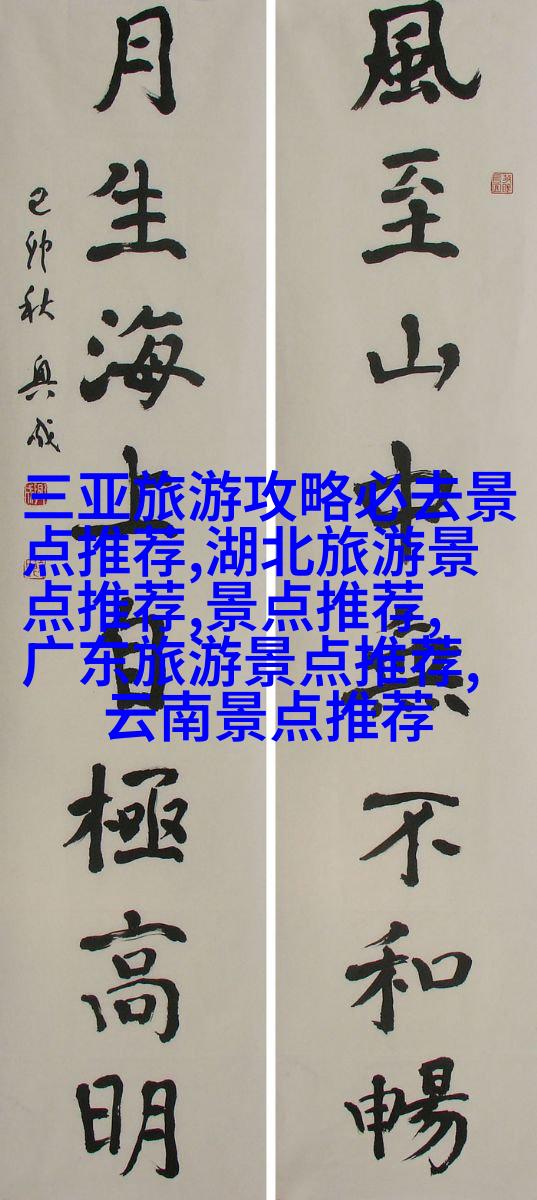 風至山中無不和暢
月生海上自極高明
己卯秋
三亚旅游攻略必去景
点推荐,湖北旅游景
点推荐,景点推荐,
广东旅游景点推荐,
云南景点推荐